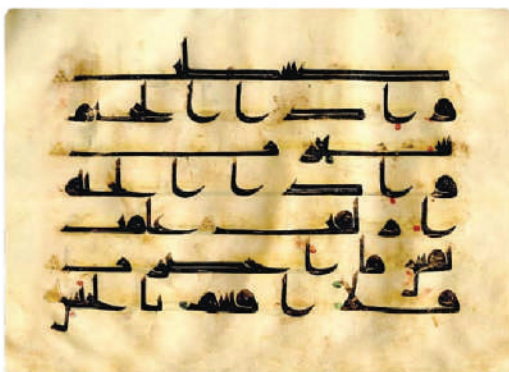 كشطت
واذا الجحيم
سعرت
واذا الجنة
ازلفت علمت
نفس ما احضرت
فلا اقسم بالخنس